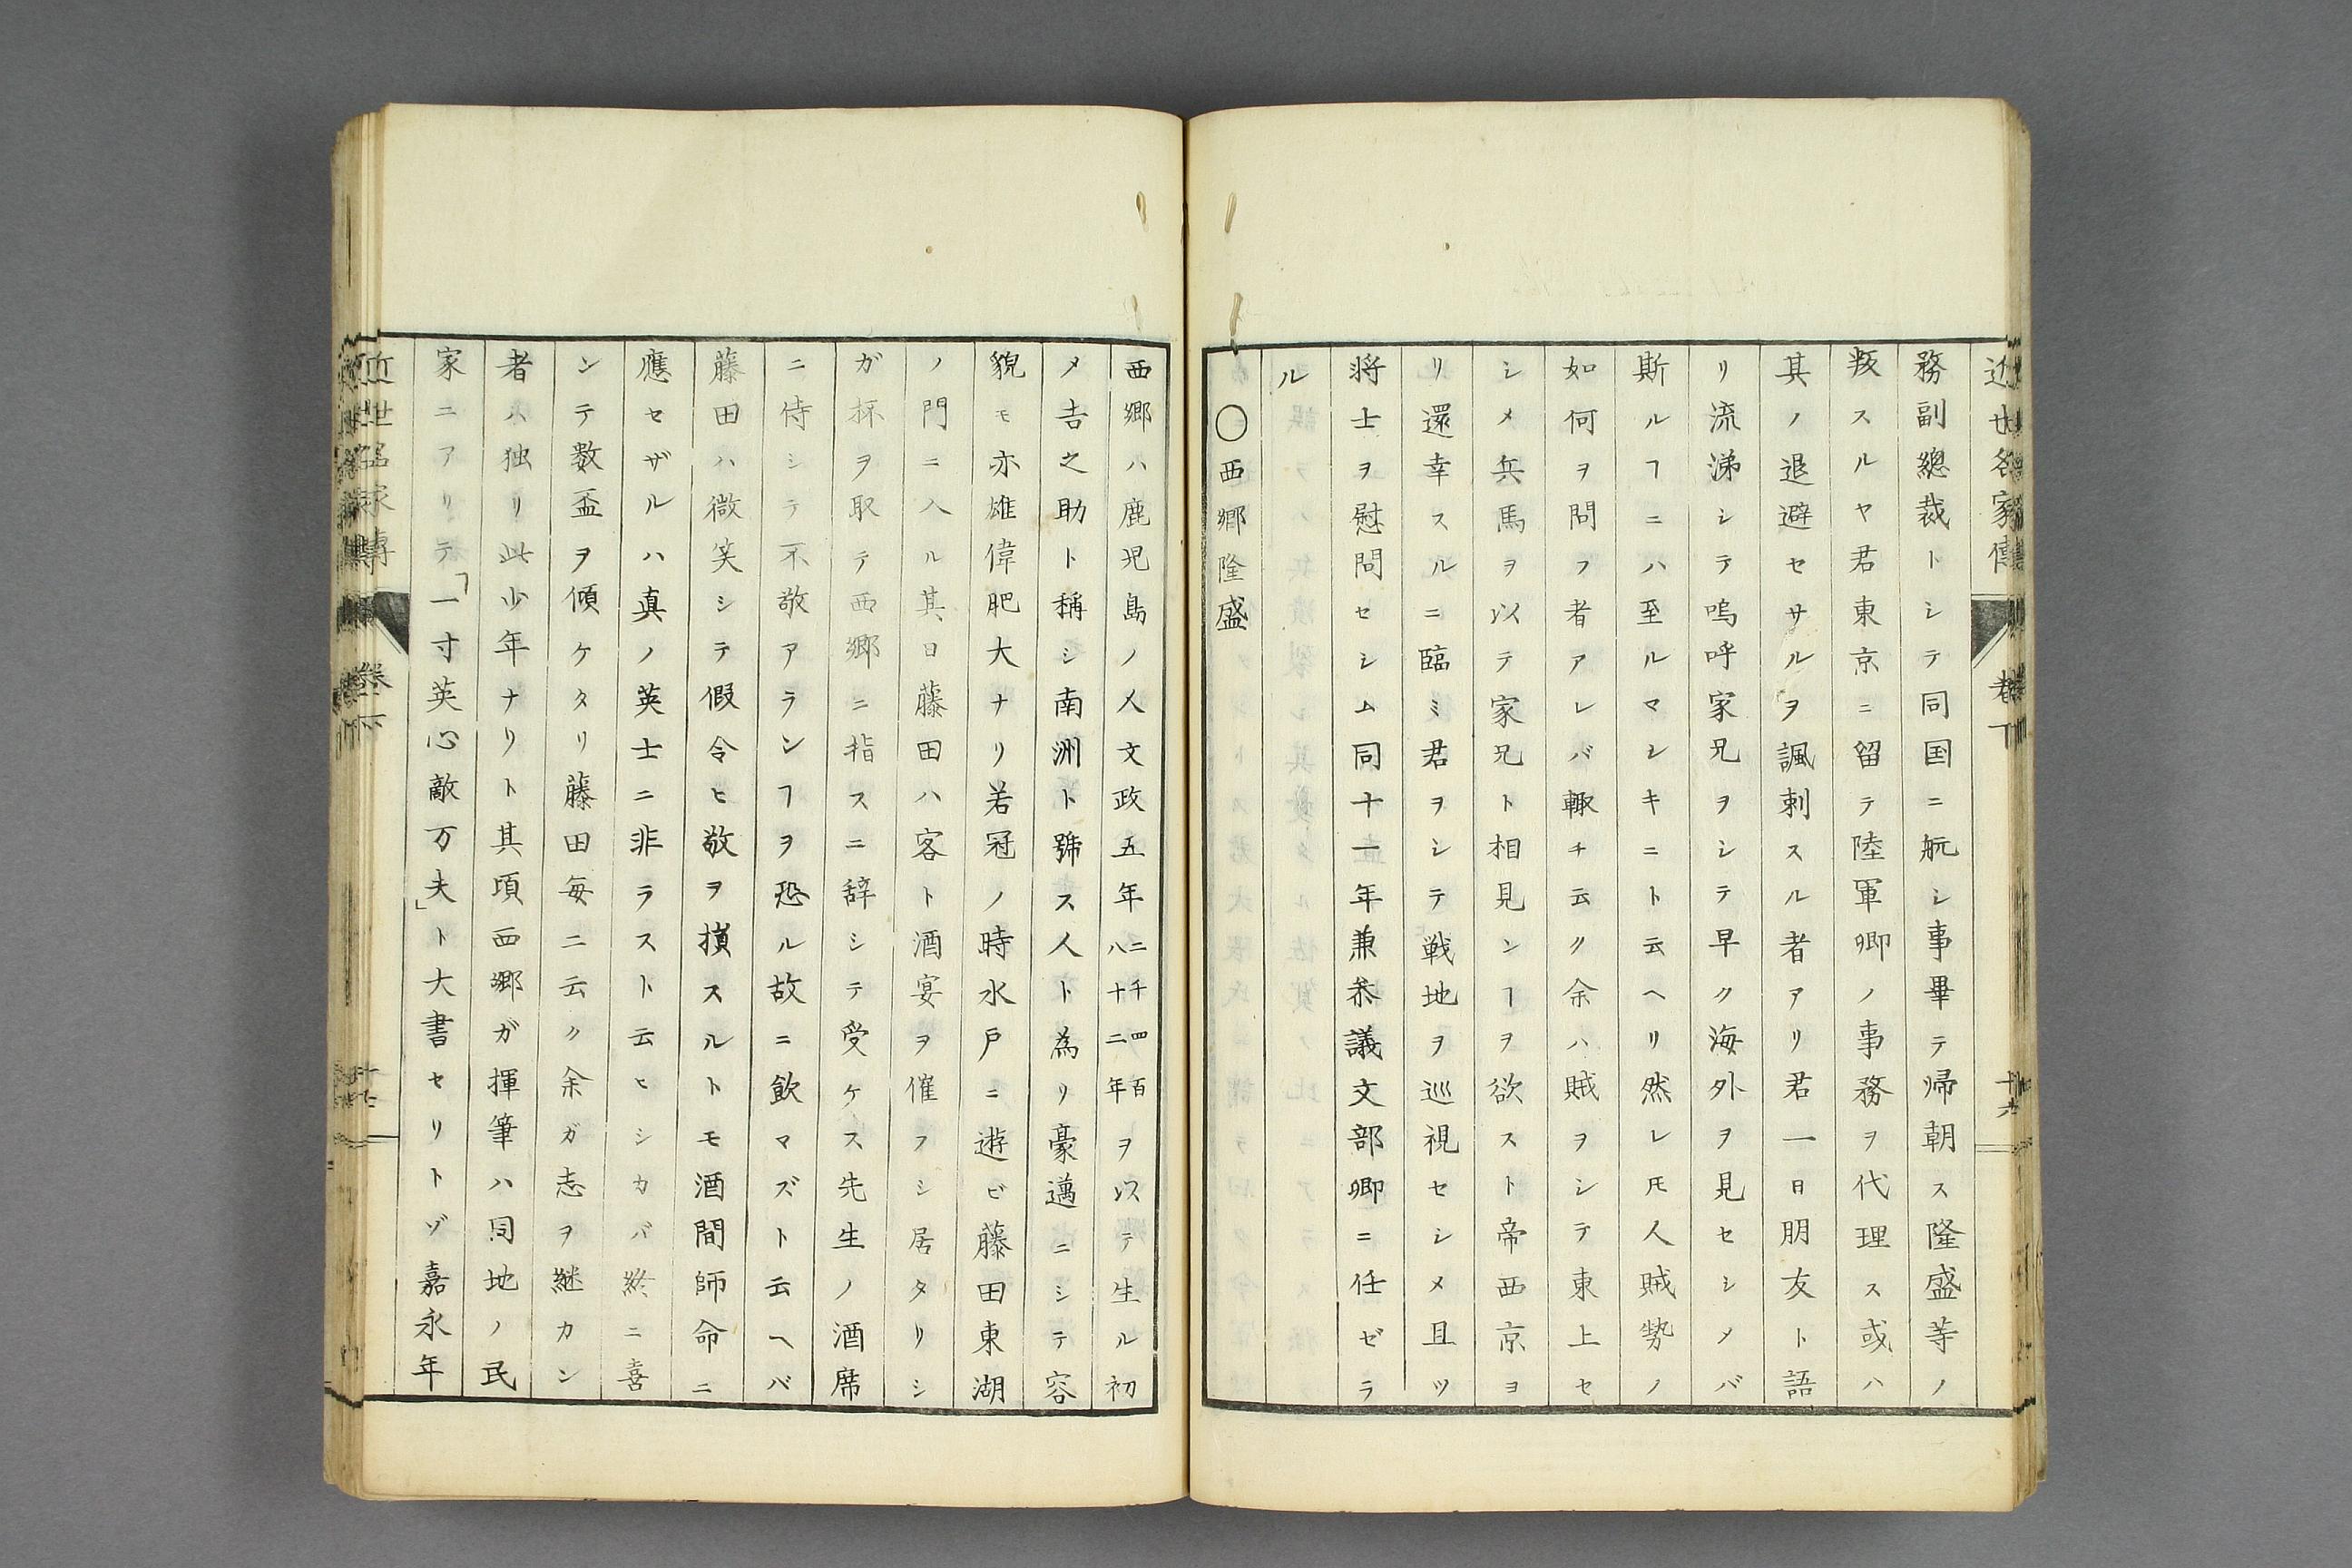 近世名家傳 卷下 十六
務副總裁トシテ同国ニ航シ事畢テ帰朝ス隆盛等ノ
叛スルヤ君東京ニ留テ陸軍卿ノ事務ヲ代理ス或ハ
其ノ退避セサルヲ諷刺スル者アリ君一日朋友ト語
リ流涕シテ嗚呼家兄ヲシテ早ク海外ヲ見セシメバ
斯ルヿニハ至ルマシキニト云ヘリ然レ𪜈人賊勢ノ
如何ヲ問フ者アレバ輙チ云ク余ハ賊ヲシテ東上セ
シメ兵馬ヲ以テ家兄ト相見ンヿヲ欲スト帝西京ヨ
リ還幸スルニ臨ミ君ヲシテ戦地ヲ巡視セシメ且ツ
将士ヲ慰問セシム同十一年兼叅議文部卿ニ任ゼラ
ル
〇西郷隆盛
西郷ハ鹿児島ノ人文政五年二千四百八十二年ヲ以テ生ル初
メ吉之助ト稱シ南洲ト號ス人ト為リ豪邁ニシテ容
貌モ亦雄偉肥大ナリ若冠ノ時水戸ニ遊ビ藤田東湖
ノ門ニ入ル其日藤田ハ客ト酒宴ヲ催フシ居タリシ
ガ杯ヲ取テ西郷ニ指スニ辞シテ受ケス先生ノ酒席
ニ侍シテ不敬アランヿヲ恐ル故ニ飲マズト云ヘバ
藤田ハ微笑シテ假令ヒ敬ヲ損スルトモ酒間師命ニ
應セザルハ真ノ英士ニ非ラスト云ヒシカバ終ニ喜
ンテ数盃ヲ傾ケタリ藤田毎ニ云ク余ガ志ヲ継カン
者ハ独リ此少年ナリト其頃西郷ガ揮筆ハ同地ノ民
家ニアリテ「一寸英心敵万夫」ト大書セリトゾ嘉永年
近世名家傳 卷下